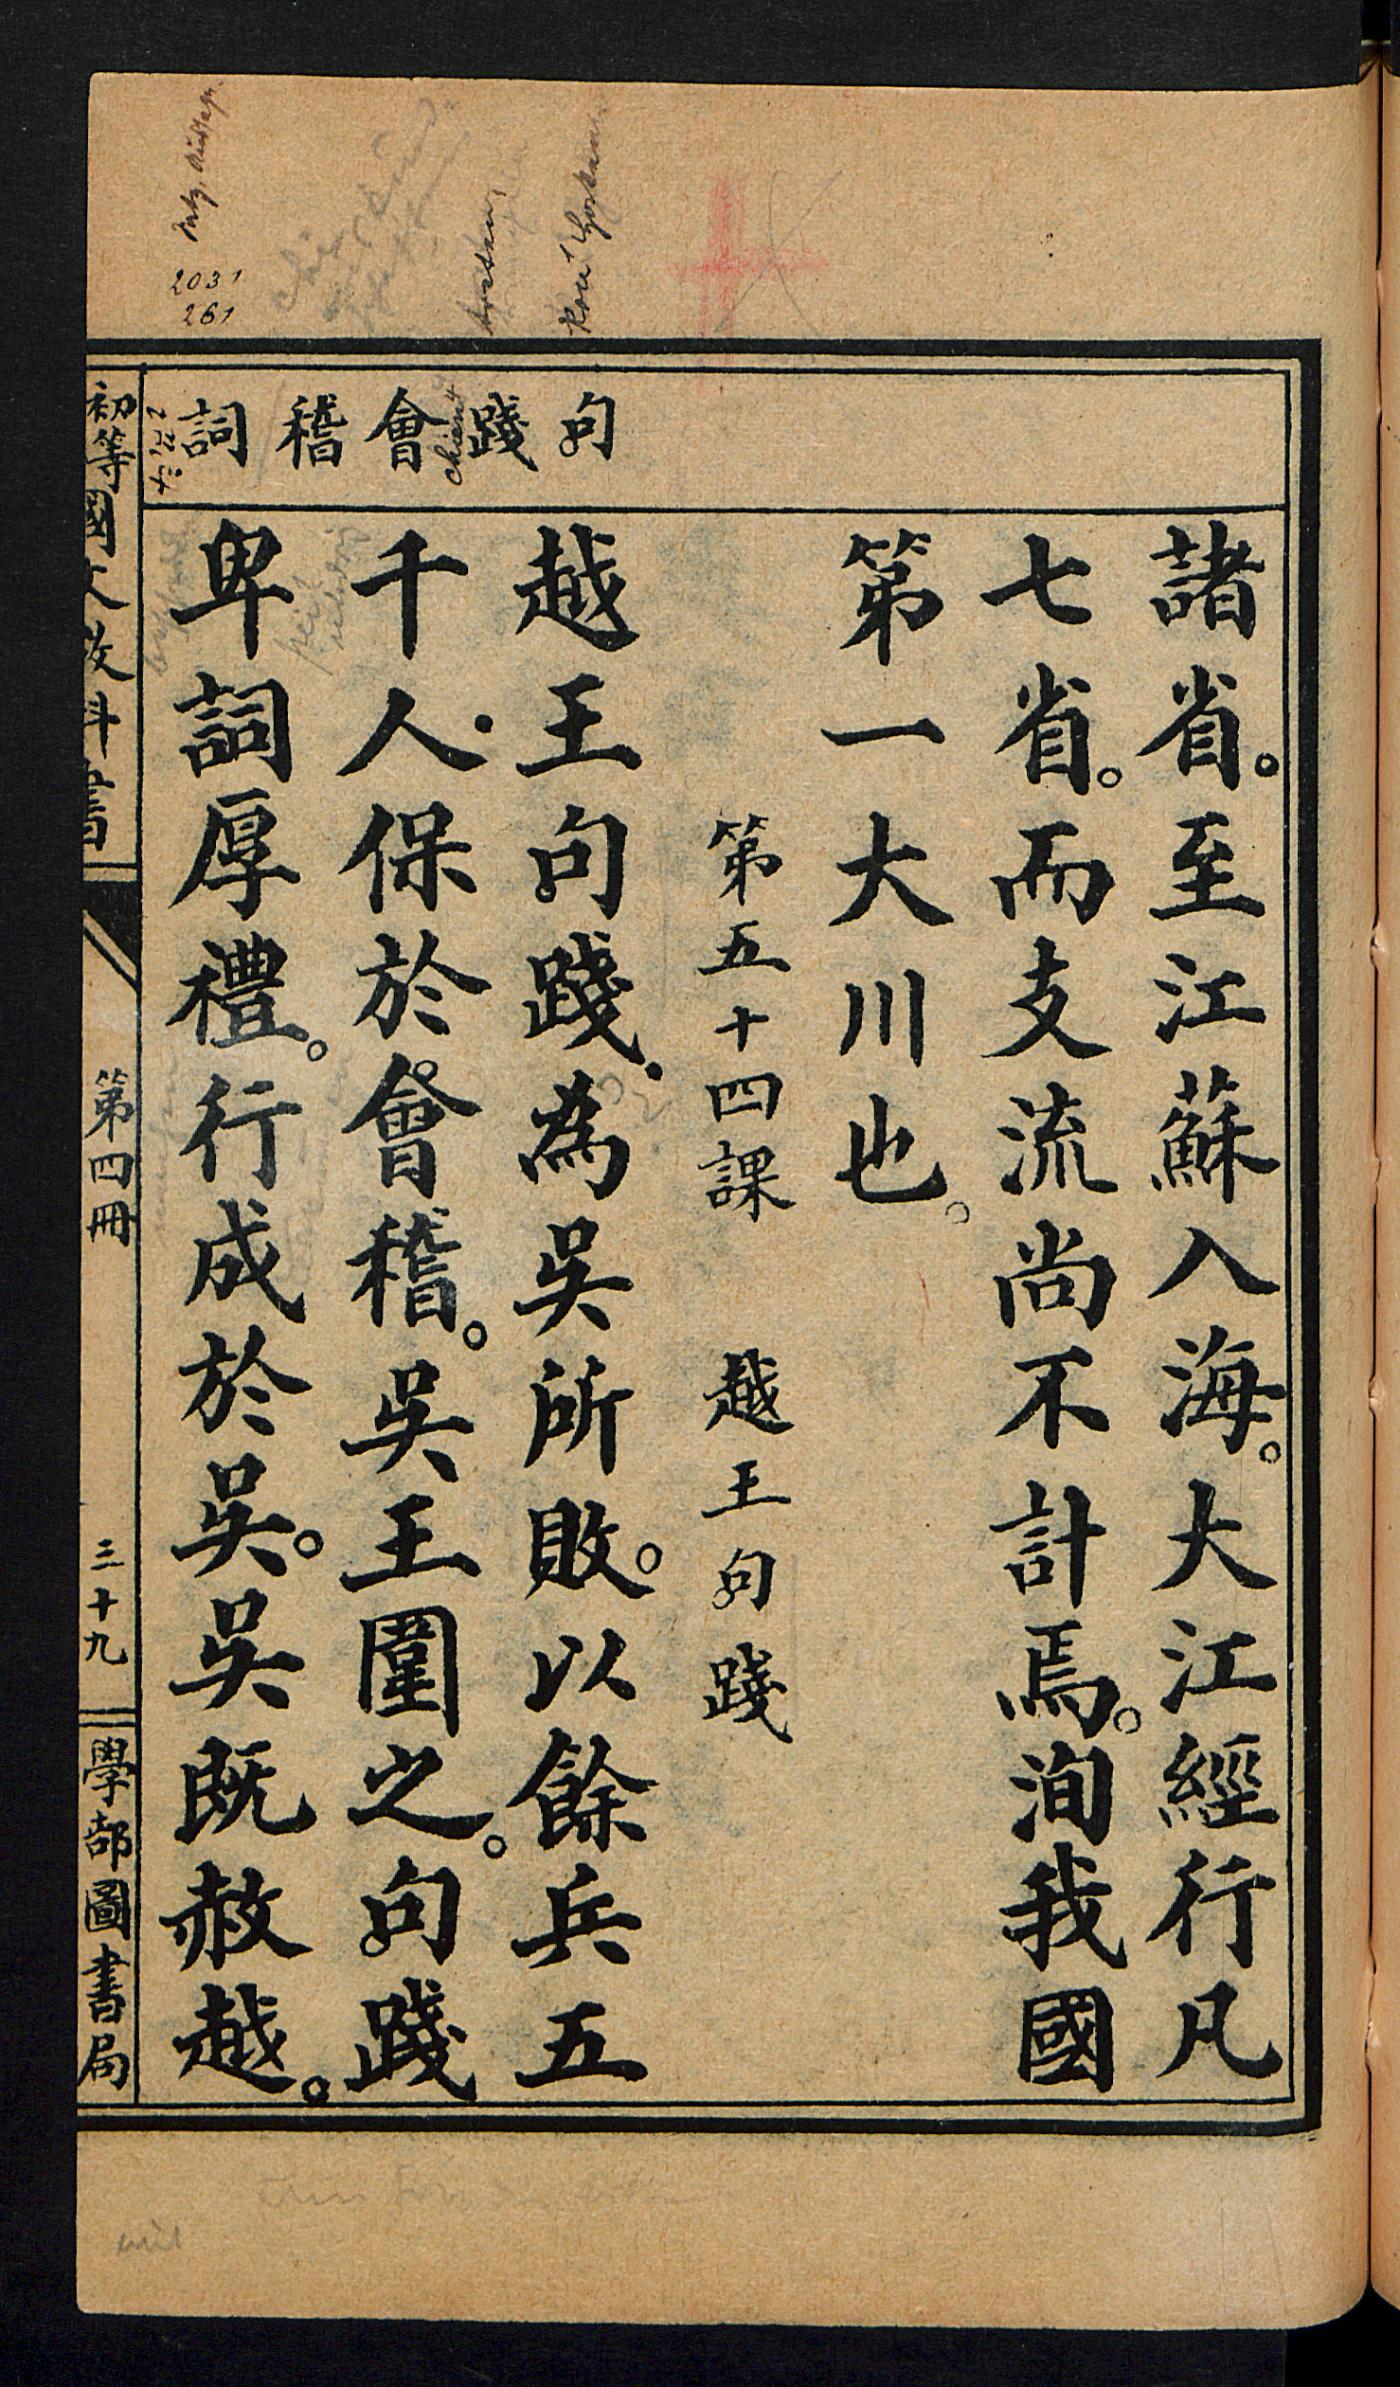 句踐會稽詞
諸省。至江蘇入海。大江經行凡
七省。而支流尚不計焉。洵我國
第一大川也。
第五十四課 越王句踐
越王句踐.為吳所敗。以餘兵五
千人.保於會稽。吳王圍之。句踐
卑詞厚禮。行成於吳。吳既赦越。
初等國文教科書
第四冊
三十九
學部圖書局
2031
261